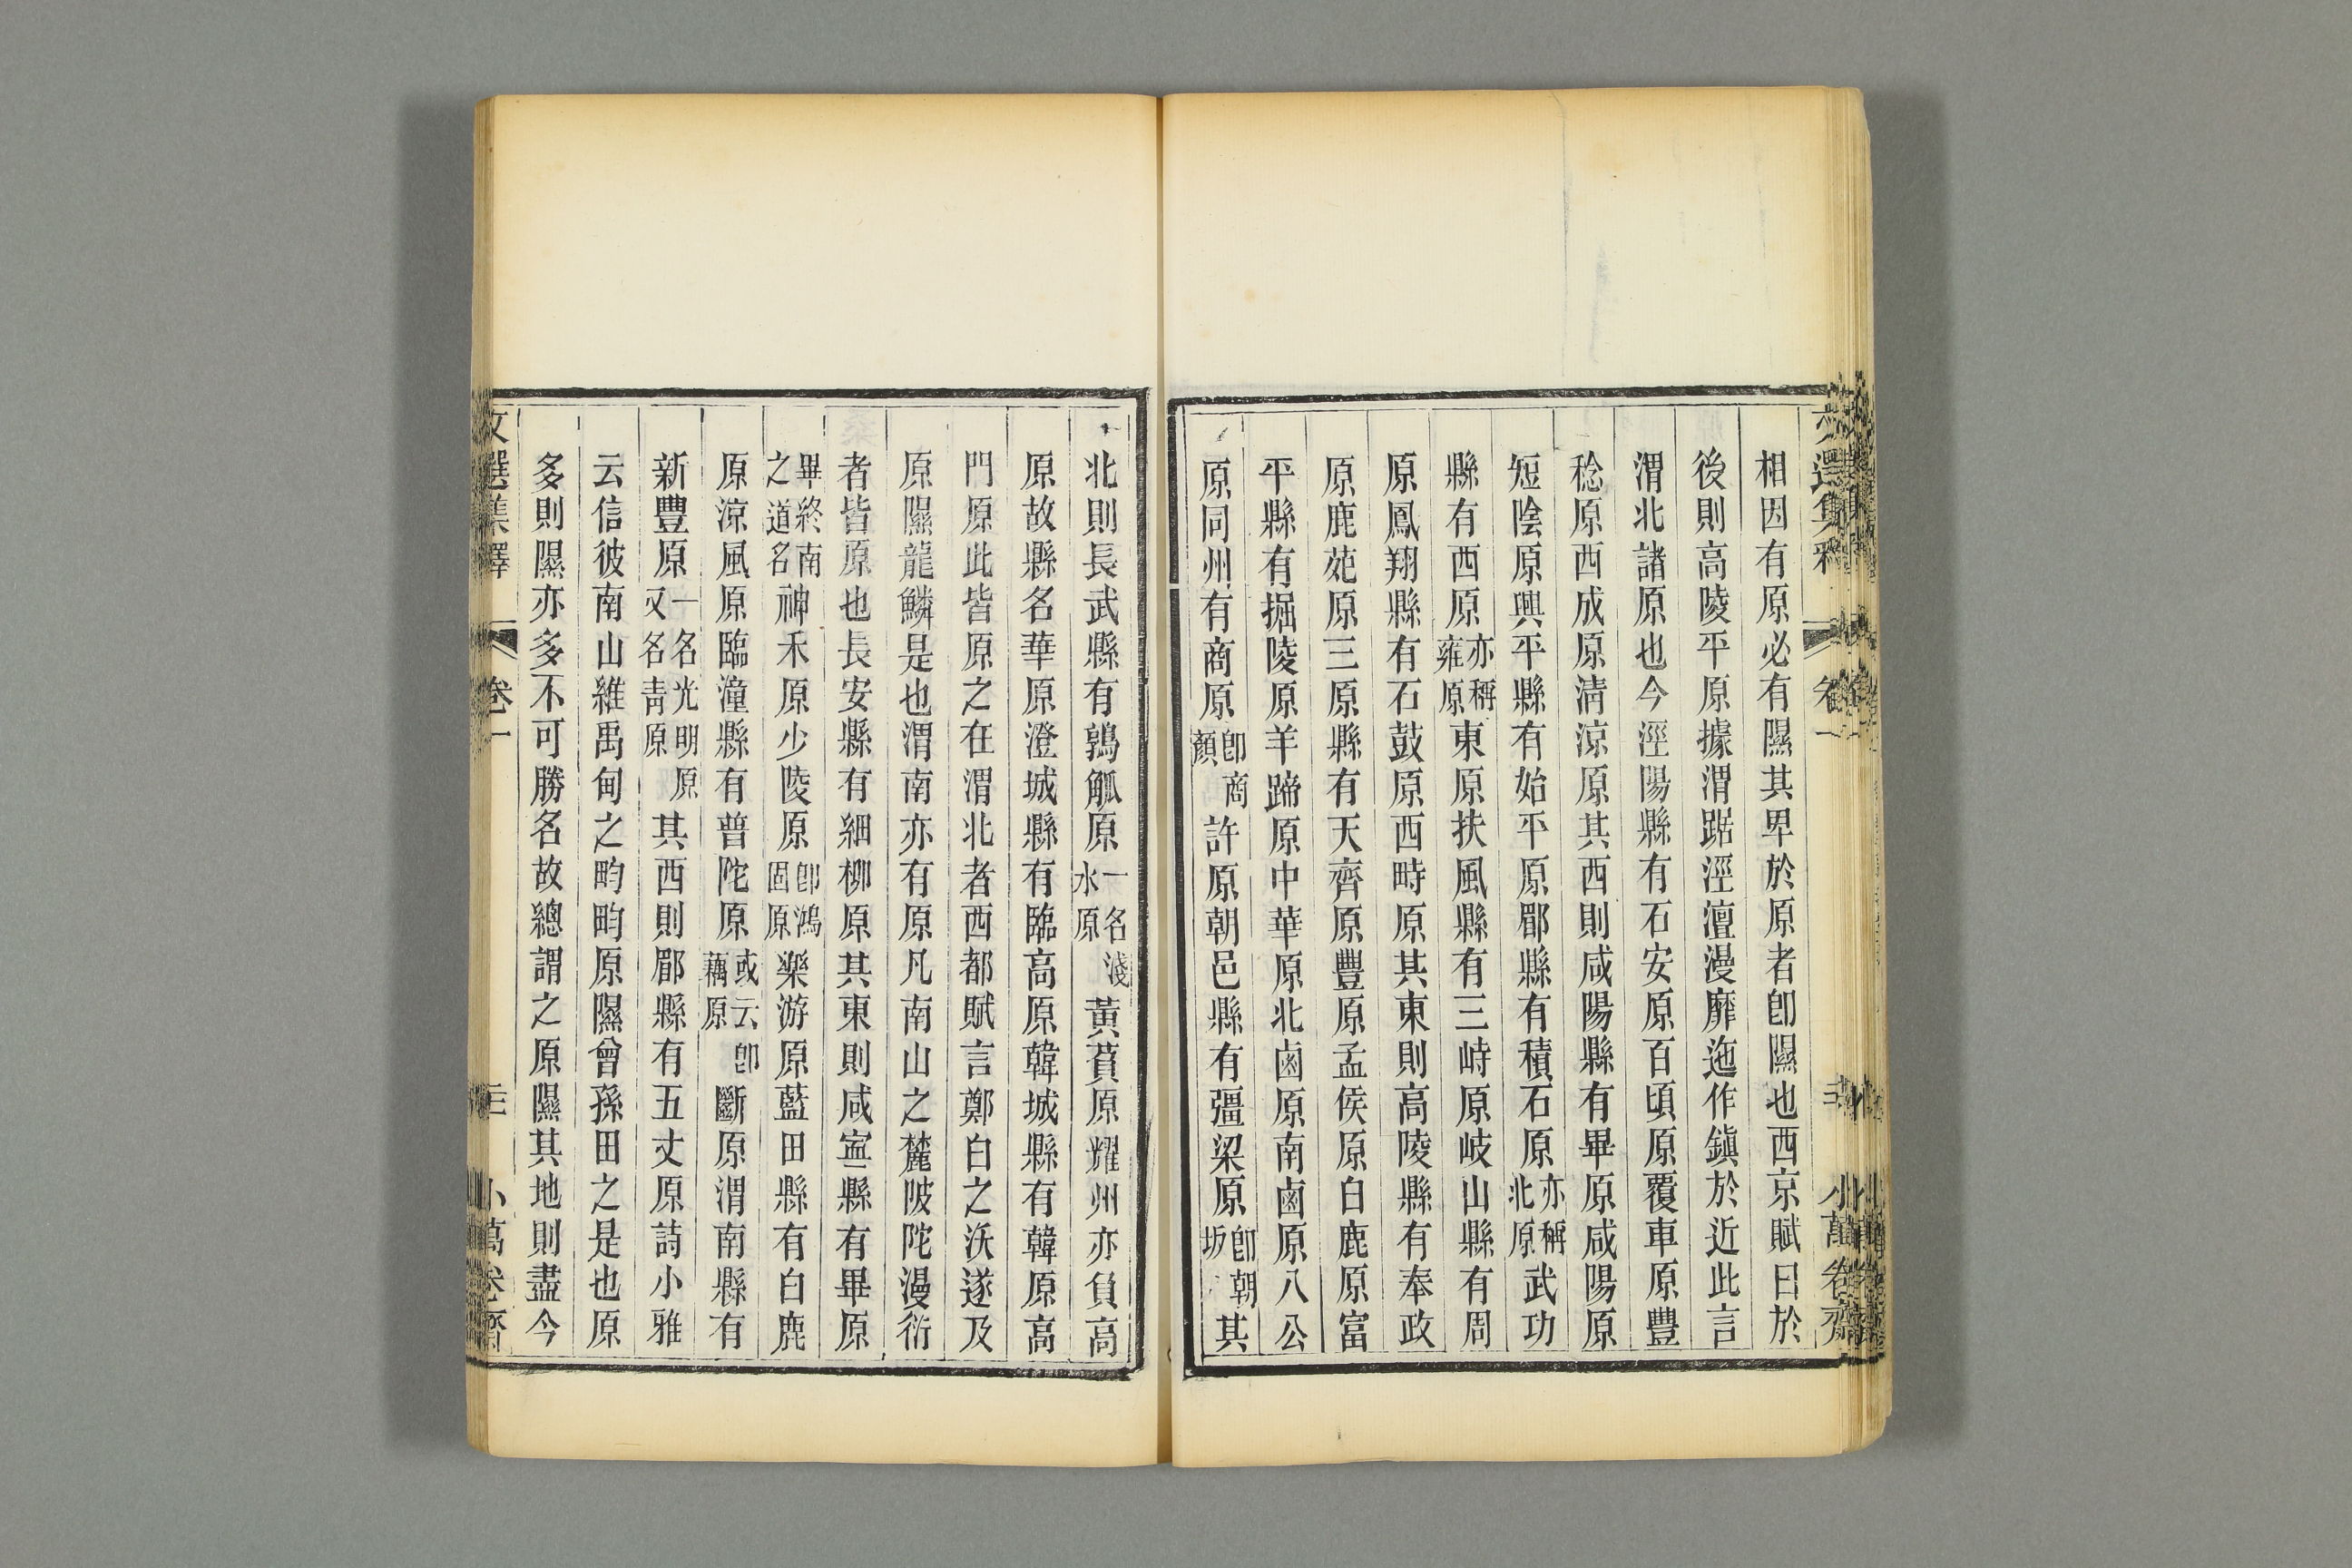 相因有原必有隰其畀於原者卽隰也西京賦曰於
後則高陵平原據渭踞涇澶漫靡迤作鎭於近此言
渭北諸原也今涇陽縣有石安原百頃原覆車原豐
稔原西成原淸涼原其西則咸陽縣有畢原咸陽原
短陰原興平縣有始平原郿縣有積石原亦稱北原武功
縣有西原亦稱雍原東原扶風縣有三畤原岐山縣有周
原鳳翔縣有石鼓原西畤原其東則高陵縣有奉政
原鹿苑原三原縣有天齊原豐原孟侯原白鹿原富
平縣有掘陵原羊蹄原中華原北鹵原南鹵原八公
原同州有商原卽商顏許原朝邑縣有彊梁原卽朝坂其
北則長武縣有鶉觚原一名淺水原黃萯原耀州亦負高
原故縣名華原澄城縣有臨高原韓城縣有韓原高
門原此皆原之在渭北者西都賦言鄭白之沃遂及
原隰龍鱗是也渭南亦有原凡南山之麓陂陀漫衍
者皆原也長安縣有細柳原其東則咸寧縣有畢原
畢終南之道名神禾原少陵原卽鴻固原樂游原藍田縣有白鹿
原涼風原臨潼縣有普陀原或云卽藕原斷原渭南縣有
新豐原一名光明原又名靑原其西則郿縣有五丈原詩小雅
云信彼南山維禹甸之畇畇原隰曾孫田之是也原
多則隰亦多不可勝名故總謂之原隰其地則盡今
文選集釋 卷一 小萬卷齋